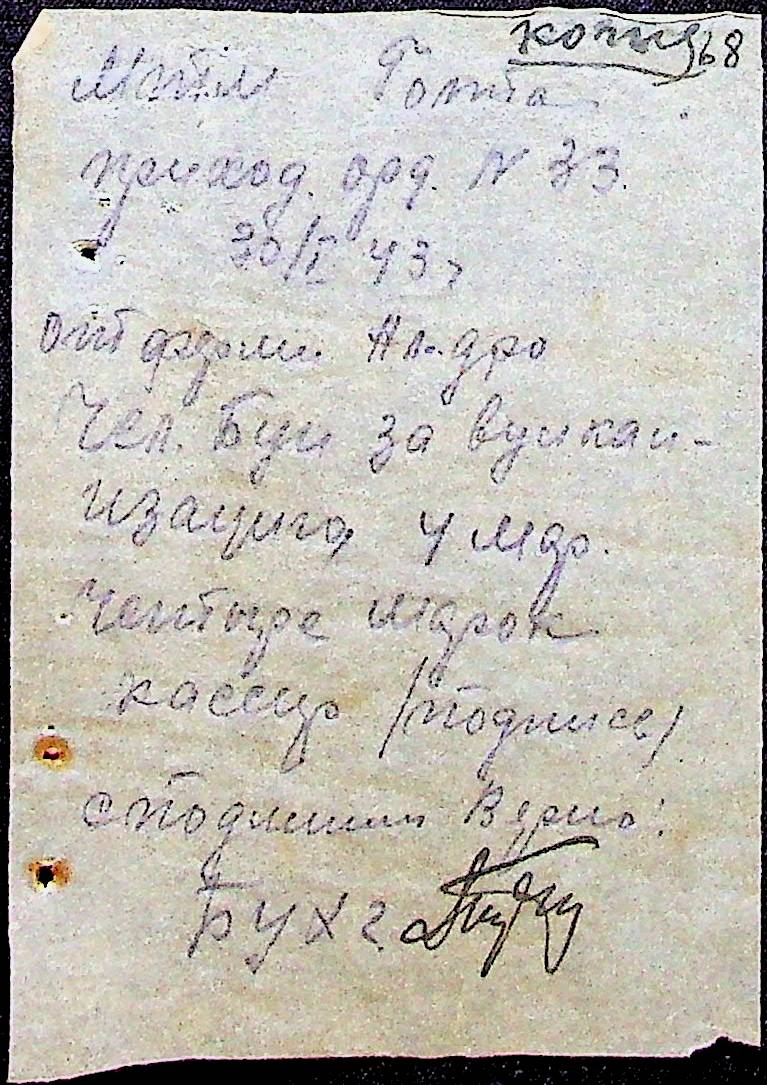 копия 68
Голта
приход. орд. N 33.
30/I 43 г
от фирм. Ан-дро
Чел. Буи за вулкан-
изацию 4 мар.
Четыре марок
кассир (подпись)
с подлинным верно:
Бухг